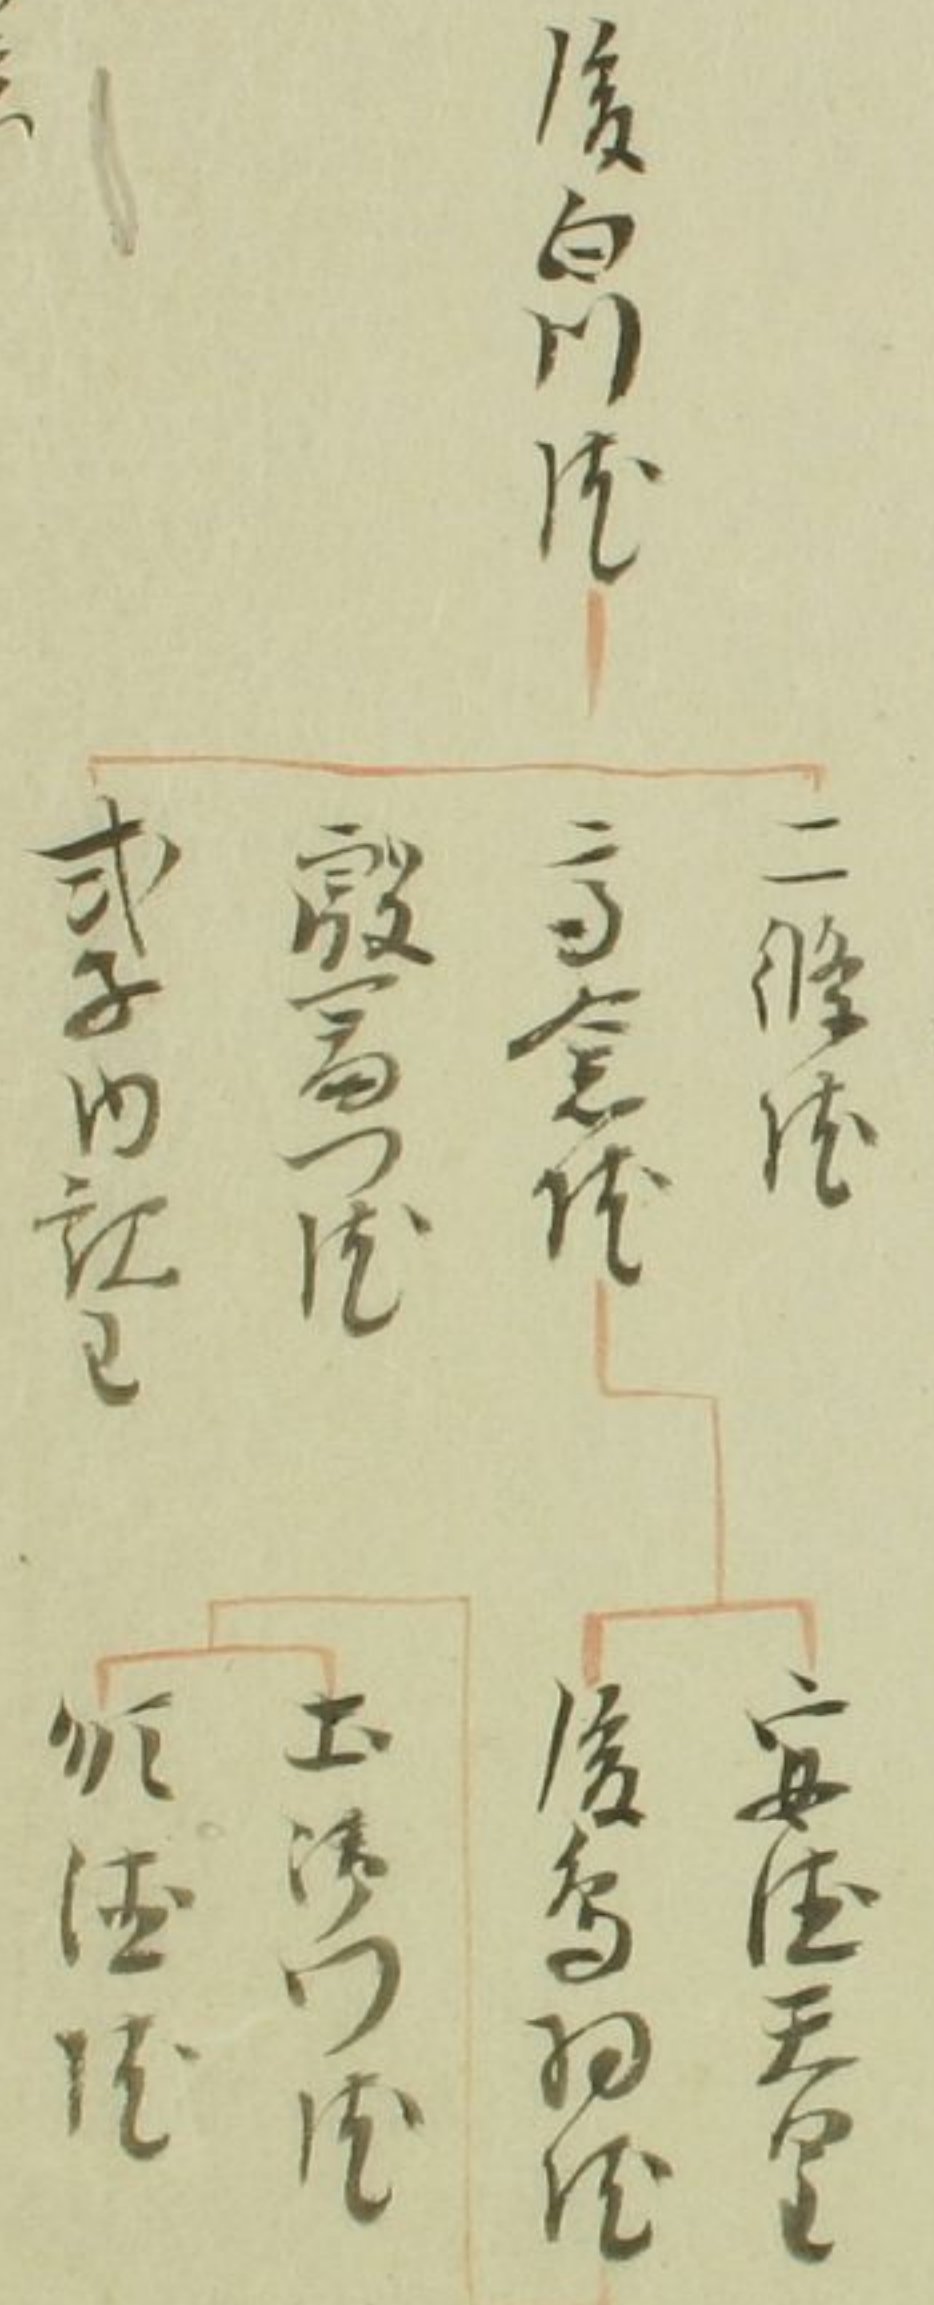 後白川院
二條院
高倉院
殷富門院
式子内親王
安徳天皇
後鳥羽院
土御門院
順徳院